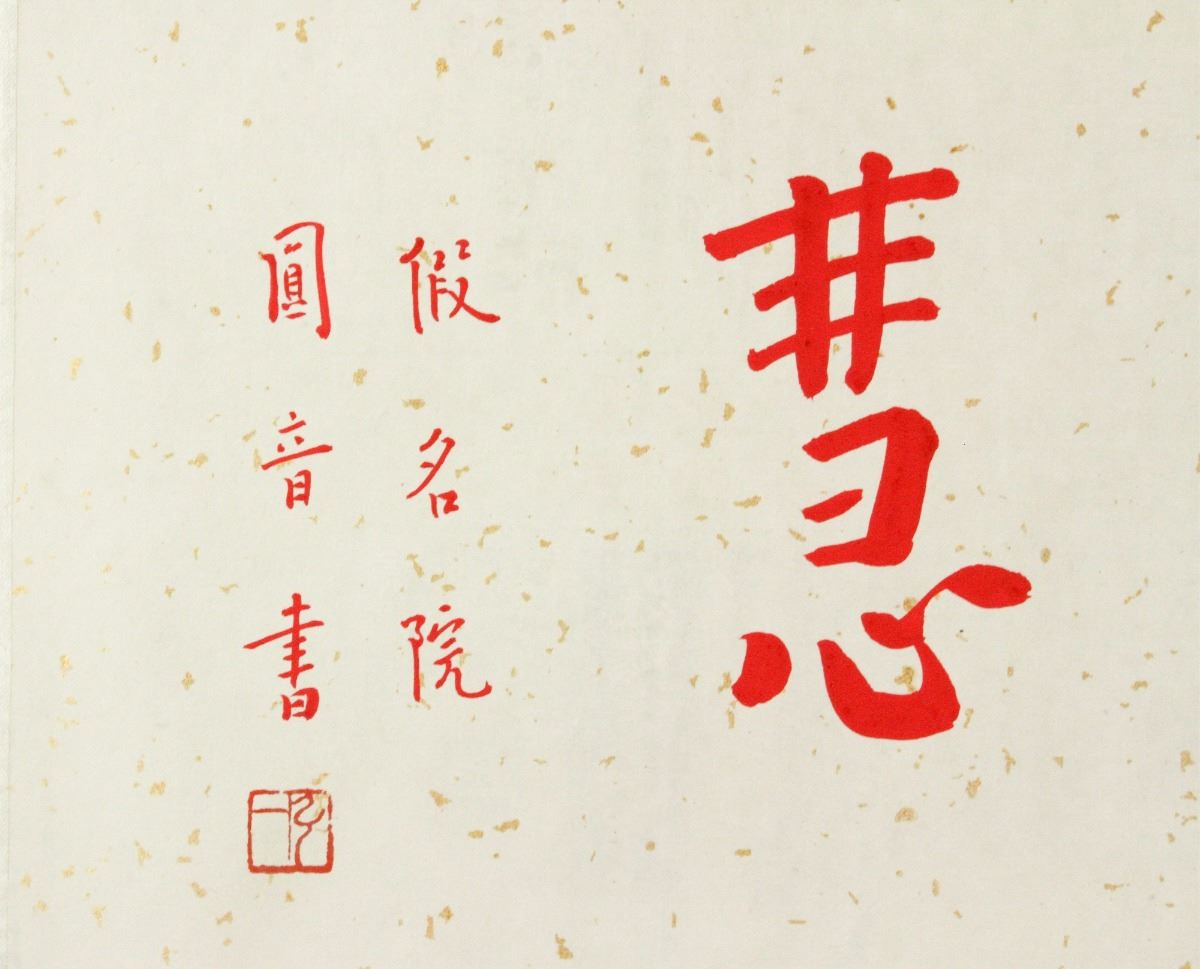 慧
假名院
圓音書